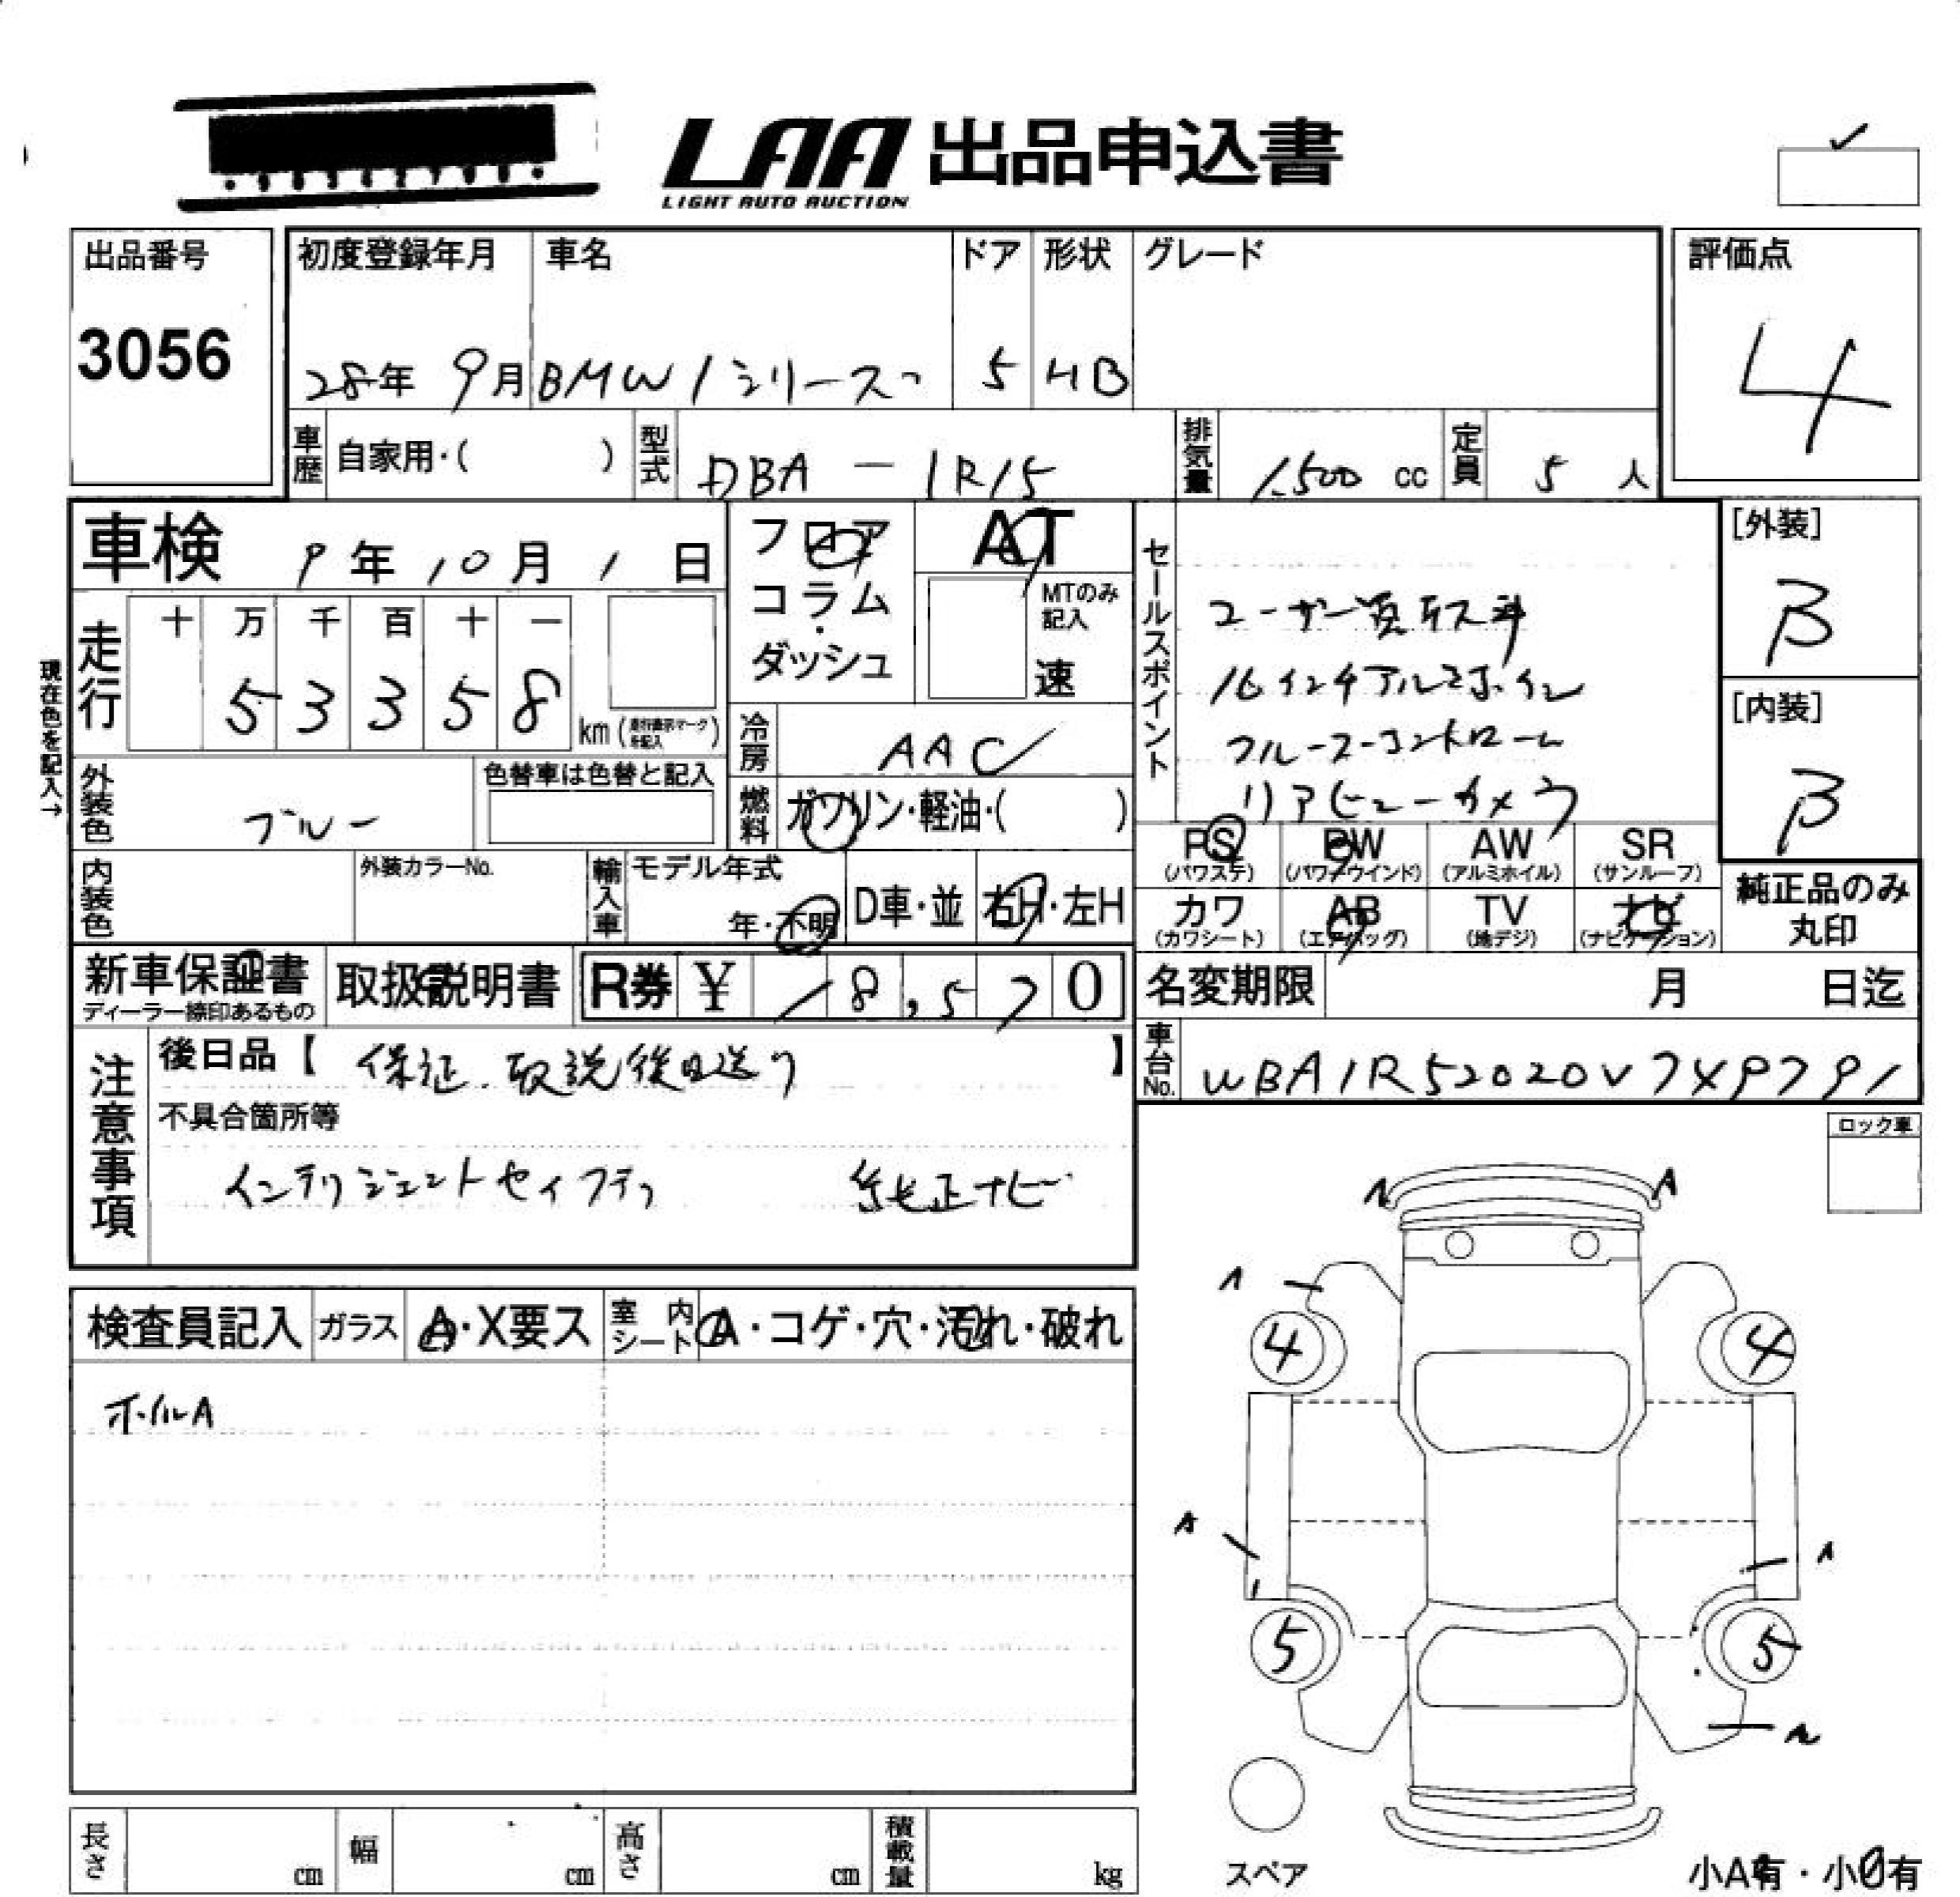 LAA 出品申込書
LIGHT AUTO AUCTION
出品番号
3056
初度登録年月
28年 9月
車名
BMW 1シリーズ
ドア
5
形状
HB
グレード
評価点
4
車歴
自家用・( )
型式
DBA - 1R15
排気量
1,500 cc
定員
5 人
車検 9年 10月 1日
フロア
コラム
・
ダッシュ
AT
MTのみ
記入
速
セールスポイント
ユーザー買取ス車
16インチアルミホイル
クルーズコントロール
リアビューカメラ
[外装]
B
[内装]
B
現在色を記入→
走行
十 万 千 百 十 一
5 3 3 5 8
km
冷房
AAC
外装色
ブルー
色替車は色替と記入
燃料
ガソリン・軽油・( )
PS
(パワステ)
PW
(パワーウインド)
AW
(アルミホイル)
SR
(サンルーフ)
カワ
(カワシート)
AB
(エアバッグ)
TV
(地デジ)
ナビ
(ナビゲーション)
純正品のみ
丸印
内装色
外装カラーNo.
輸入車
モデル年式
年・不明
D車・並
右H・左H
新車保証書
ディーラー捺印あるもの
取扱説明書
R券 ¥ 18,570
名変期限 月 日迄
車台No.
WBA1R52020V7X9791
注意事項
後日品【 保証、取説後日送り 】
不具合箇所等
インテリジェントセイフティ 純正ナビ
ロック車
検査員記入
ガラス
A・X要ス
室内
シート
A・コゲ・穴・汚れ・破れ
ホイルA
A A
A
4 4
A A
5 5
A
スペア
小A有・小U有
長さ cm
幅 cm
高さ cm
積載量 kg